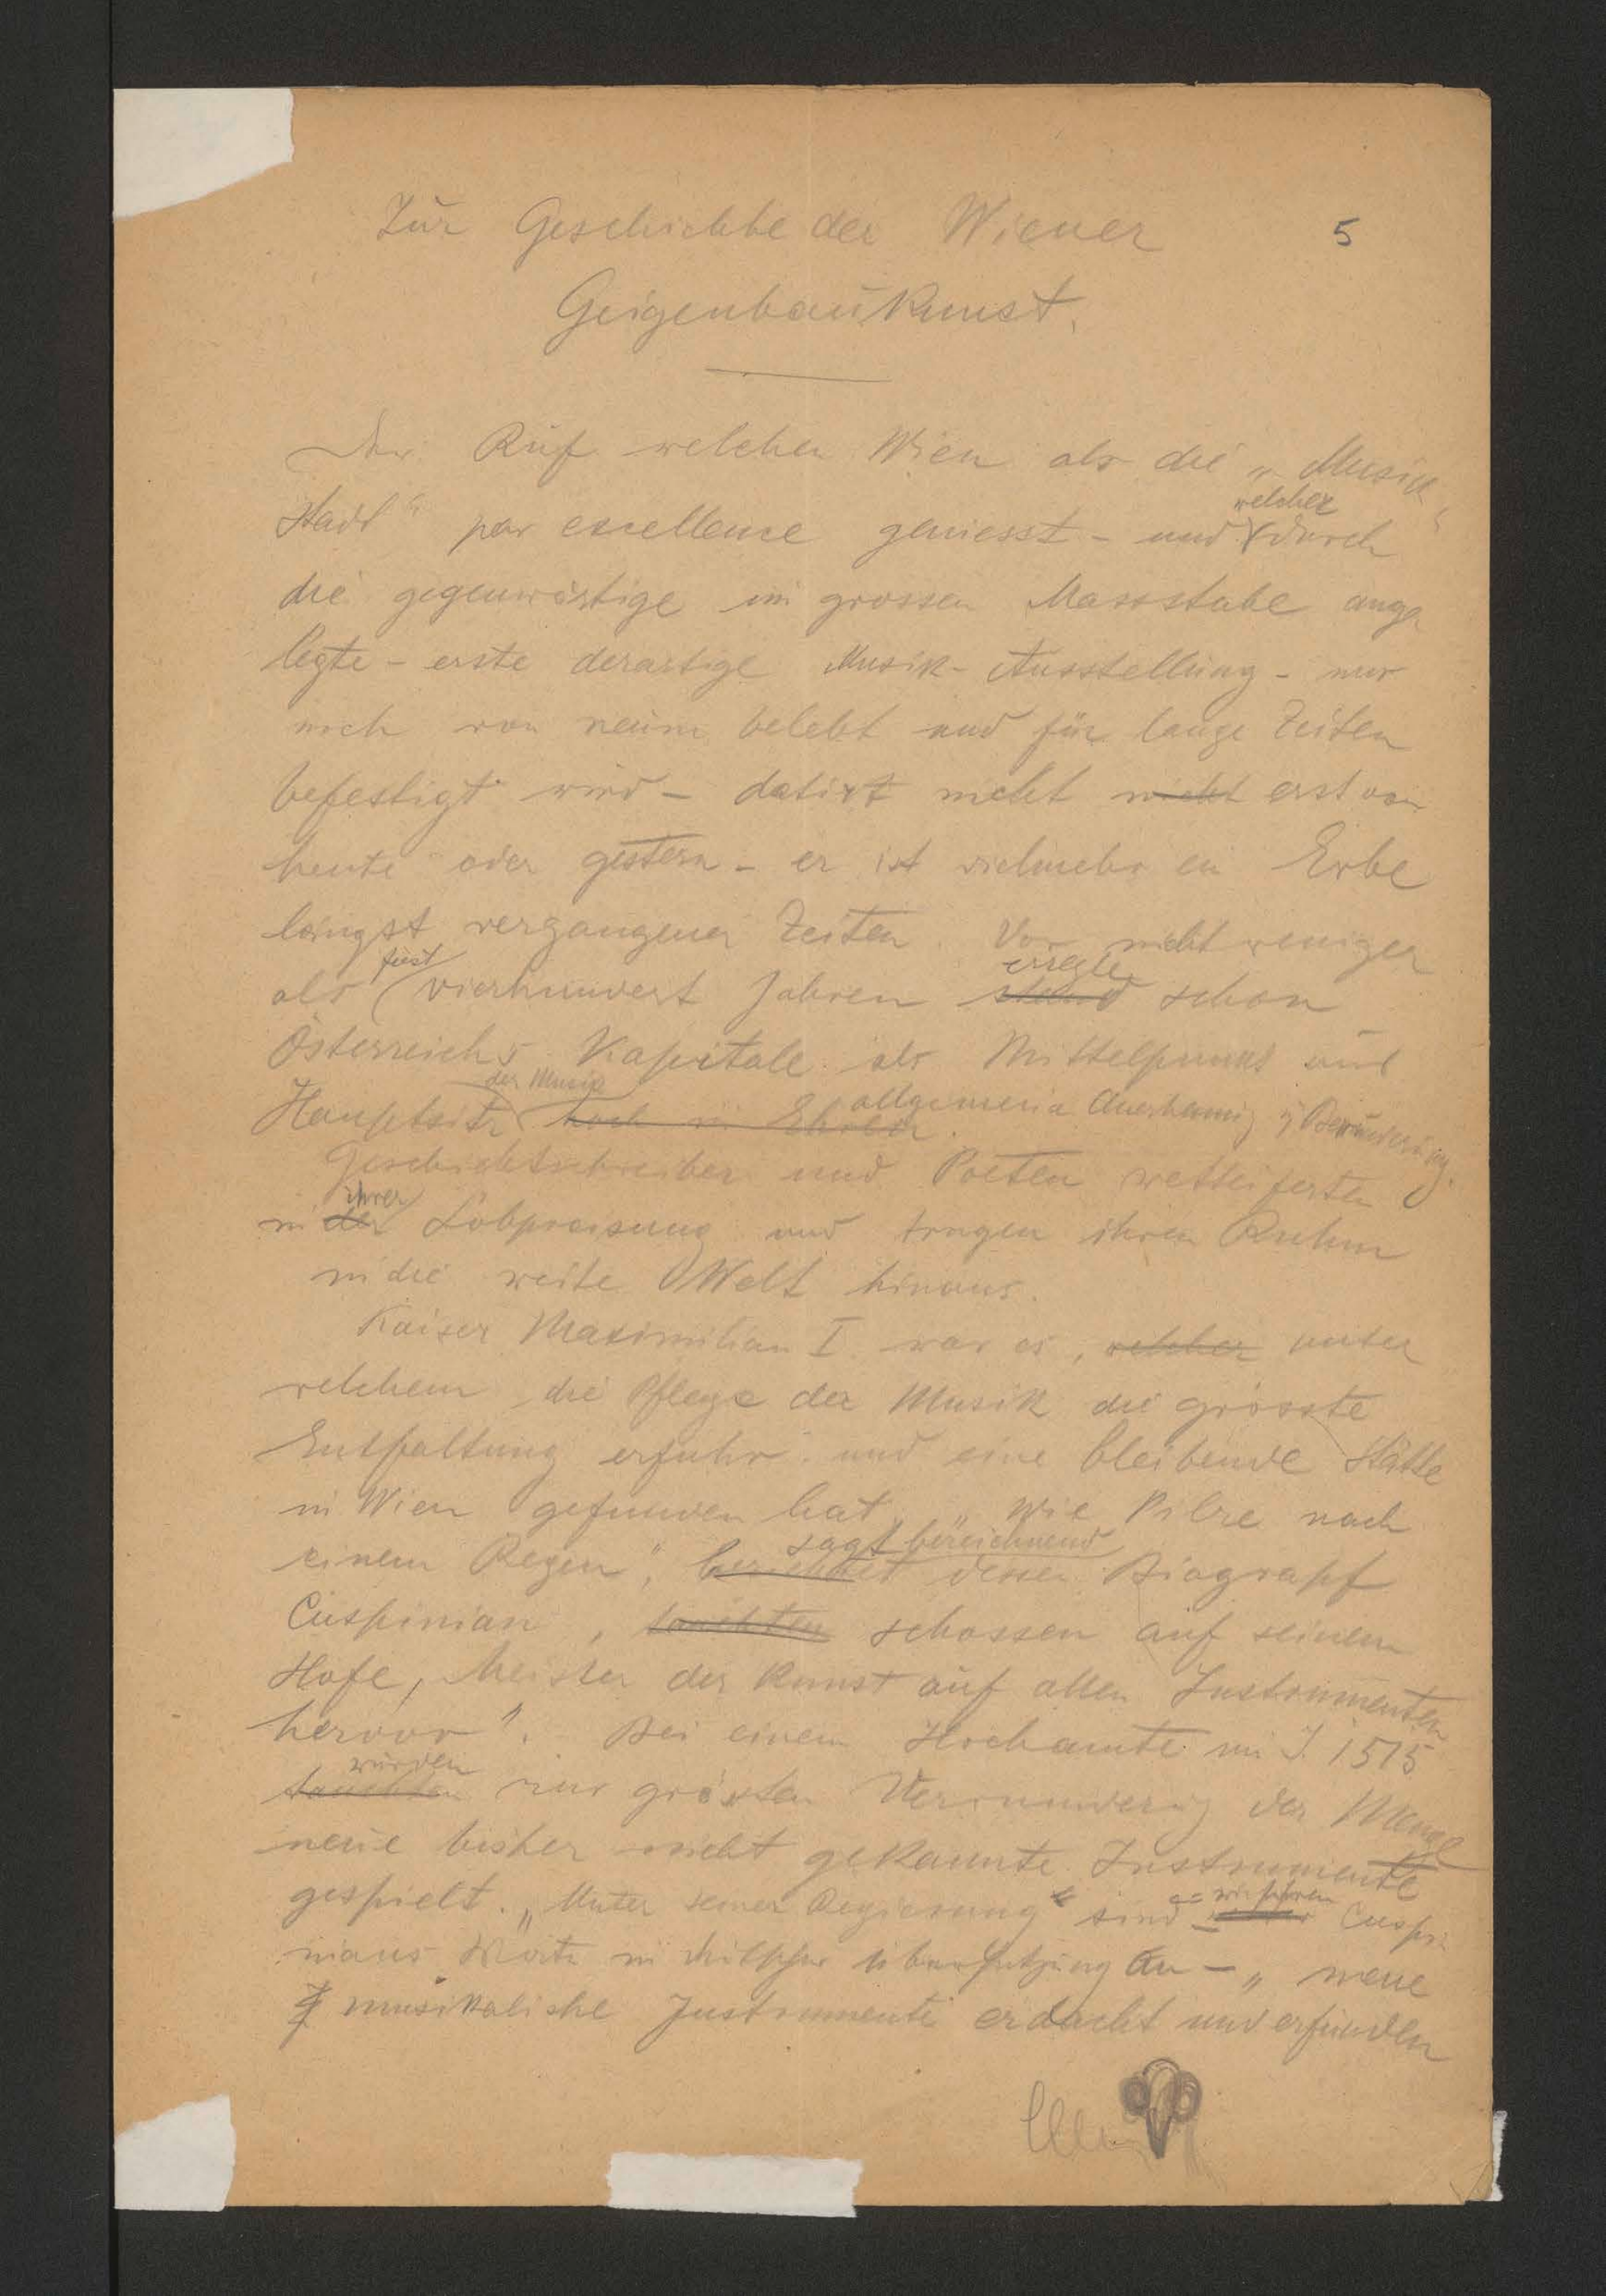 Zur Geschichte der Wiener
5
Geigenbaukunst.
Der Ruf welchen Wien als die „Musik-
welcher
stadt" par excellence geniesst - und durch
die gegenwärtige im grossen Massstabe ange
legte - erste derartige Musik-Ausstellung - nur
noch von neuem belebt und für lange Zeiten
befestigt wird - datirt nicht nicht erst von
heute oder gestern - er ist vielmehr ein Erbe
längst vergangener Zeiten. Vor nicht weniger
fast erregte
als vierhundert Jahren stand schon
Österreichs Kapitale als Mittelpunkt und
der Musik
Hauptsitz hoch in Ehren. allgemeine Anerkennung u Bewunderung.
Geschichtschreiber und Poeten wetteiferten
ihrer
in der Lobpreisung und trugen ihren Ruhm
in die weite Welt hinaus.
Kaiser Maximilian I. war es, welcher unter
welchem die Pflege der Musik die grösste
Entfaltung erfuhr und eine bleibende Stätte
in Wien gefunden hat. „Wie Pilze nach
sagt bezeichnend
einem Regen", berichtet dessen Biograpf
Cuspinian, tauchten schossen auf seinem
Hofe, Meister der Kunst auf allen Instrumenten
hervor". Bei einem Hochamte im J. 1515
wurden
tauchten zur grössten Verwunderung der Menge
neue bisher nicht gekannte Instrumente
gespielt. „Unter seiner Regierung" sind - wir führen Cuspi
nians Worte in deutscher Übersetzung an - „neue
musikalische Instrumente erdacht und erfunden